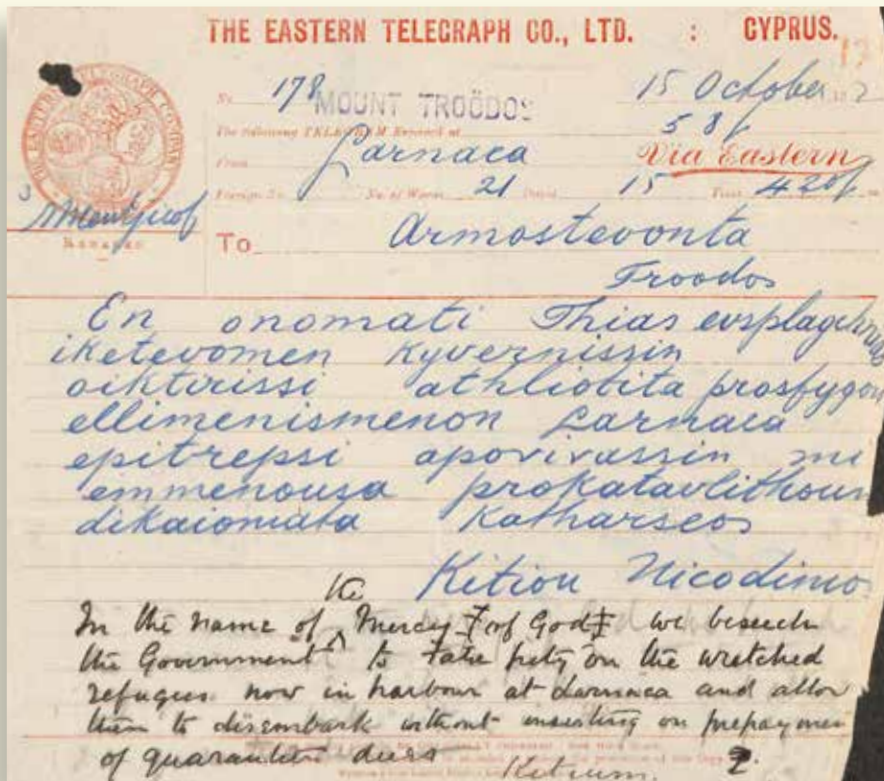 THE EASTERN TELEGRAPH CO., LTD. : CYPRUS.
No. 178 MOUNT TROÖDOS 15 October
The following TELEGRAM Received at 5 8
From Larnaca Via Eastern
Foreign No. No. of Words 21 15 Time 4 20
To Armostevonta
Troodos
En onomati Thias evsplagchnias
iketevomen Kyvernissin
oiktirissi athliotita prosfygon
ellimenismenon Larnaca
epitrepsi apovivassin mi
emmenousa prokatavlithoun
dikaiomata Katharseos
Kitiou Nicodimos
In the name of the Mercy of God we beseech
the Government to take pity on the wretched
refugees now in harbour at Larnaca and allow
them to disembark without insisting on prepaymen
of quarantine dues
Kitium.